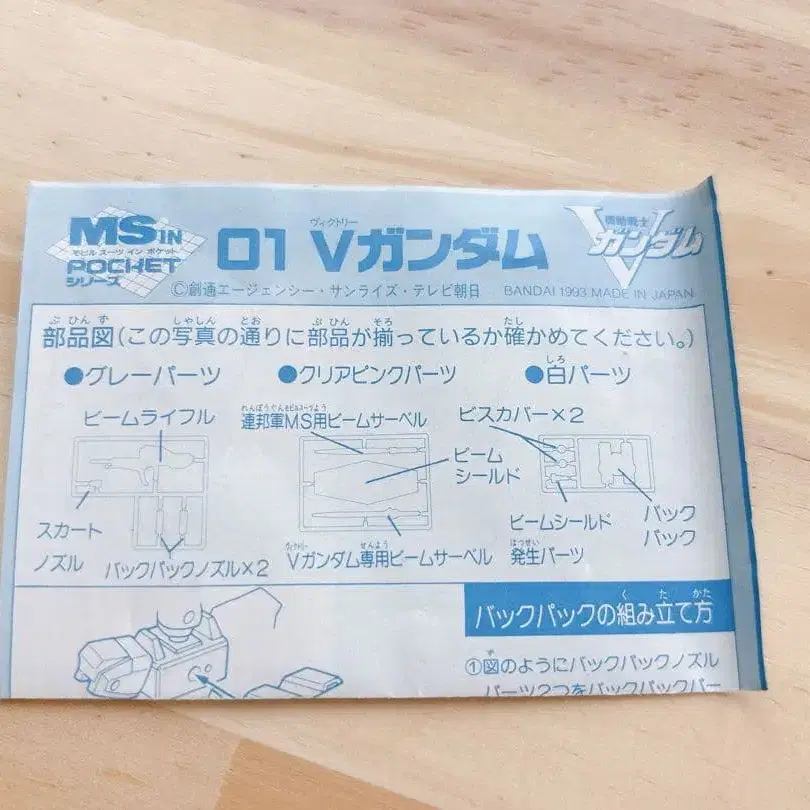 MS IN
モビル スーツ イン ポケット
POCKET
シリーズ
ヴィクトリー
01 Vガンダム
機動戦士
Vガンダム
©創通エージェンシー・サンライズ・テレビ朝日 BANDAI 1993 MADE IN JAPAN
ぶひんず しゃしん とお ぶひん そろ たし
部品図(この写真の通りに部品が揃っているか確かめてください。)
しろ
●グレーパーツ ●クリアピンクパーツ ●白パーツ
ビームライフル
れんぽうぐんモビルスーツよう
連邦軍MS用ビームサーベル
ビスカバー×2
ビーム
シールド
スカート
ノズル
バックパックノズル×2
ヴィクトリー せんよう
Vガンダム専用ビームサーベル
ビームシールド
はっせい
発生パーツ
バック
パック
く た かた
バックパックの組み立て方
ず
①図のようにバックパックノズル
パーツ2つをバックパックパー